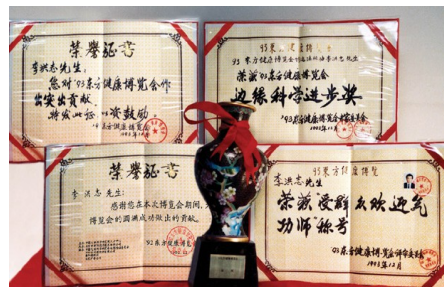 荣誉证书
李洪志先生:
您对'93东方健康博览会作
出突出贡献,
特发此证 以资鼓励
'93东方健康博览会
1993年12月
'93东方健康博览会
李洪志先生
荣获'93东方健康博览会
边缘科学进步奖
'93东方健康博览会评审委员会
1993年12月
荣誉证书
李洪志先生:
感谢您在本次博览会期间,为
博览会的圆满成功做出的贡献。
'92东方健康博览会
'93东方健康博览
李洪志先生
荣获受群众欢迎气
功师"称号
'93东方健康博览会评审委员会
1993年12月